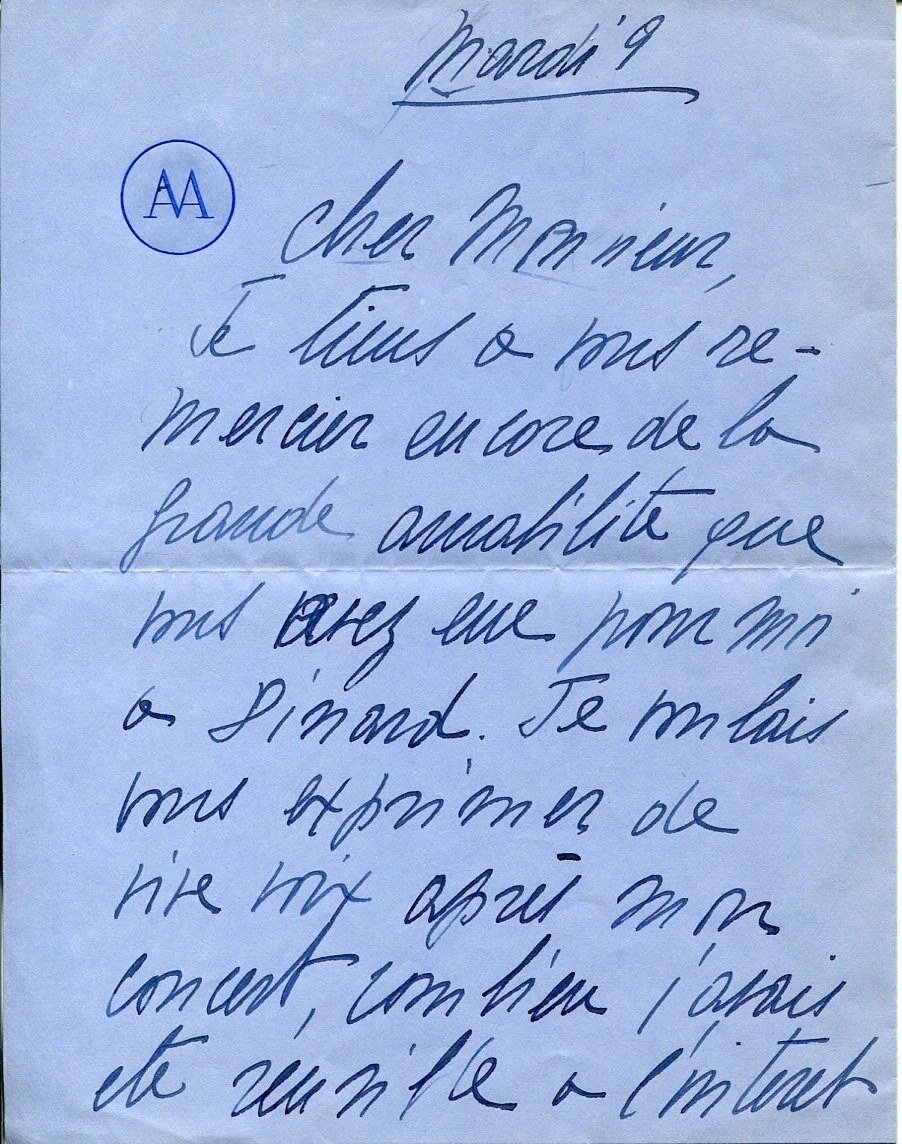 Mardi 9
AA
Cher Monsieur,
Je tiens a vous re-
mercier encore de la
grande amabilité que
vous avez eue pour moi
a Dinard. Je voulais
vous exprimer de
vive voix après mon
concert, combien j'avais
été sensible a l'intéret